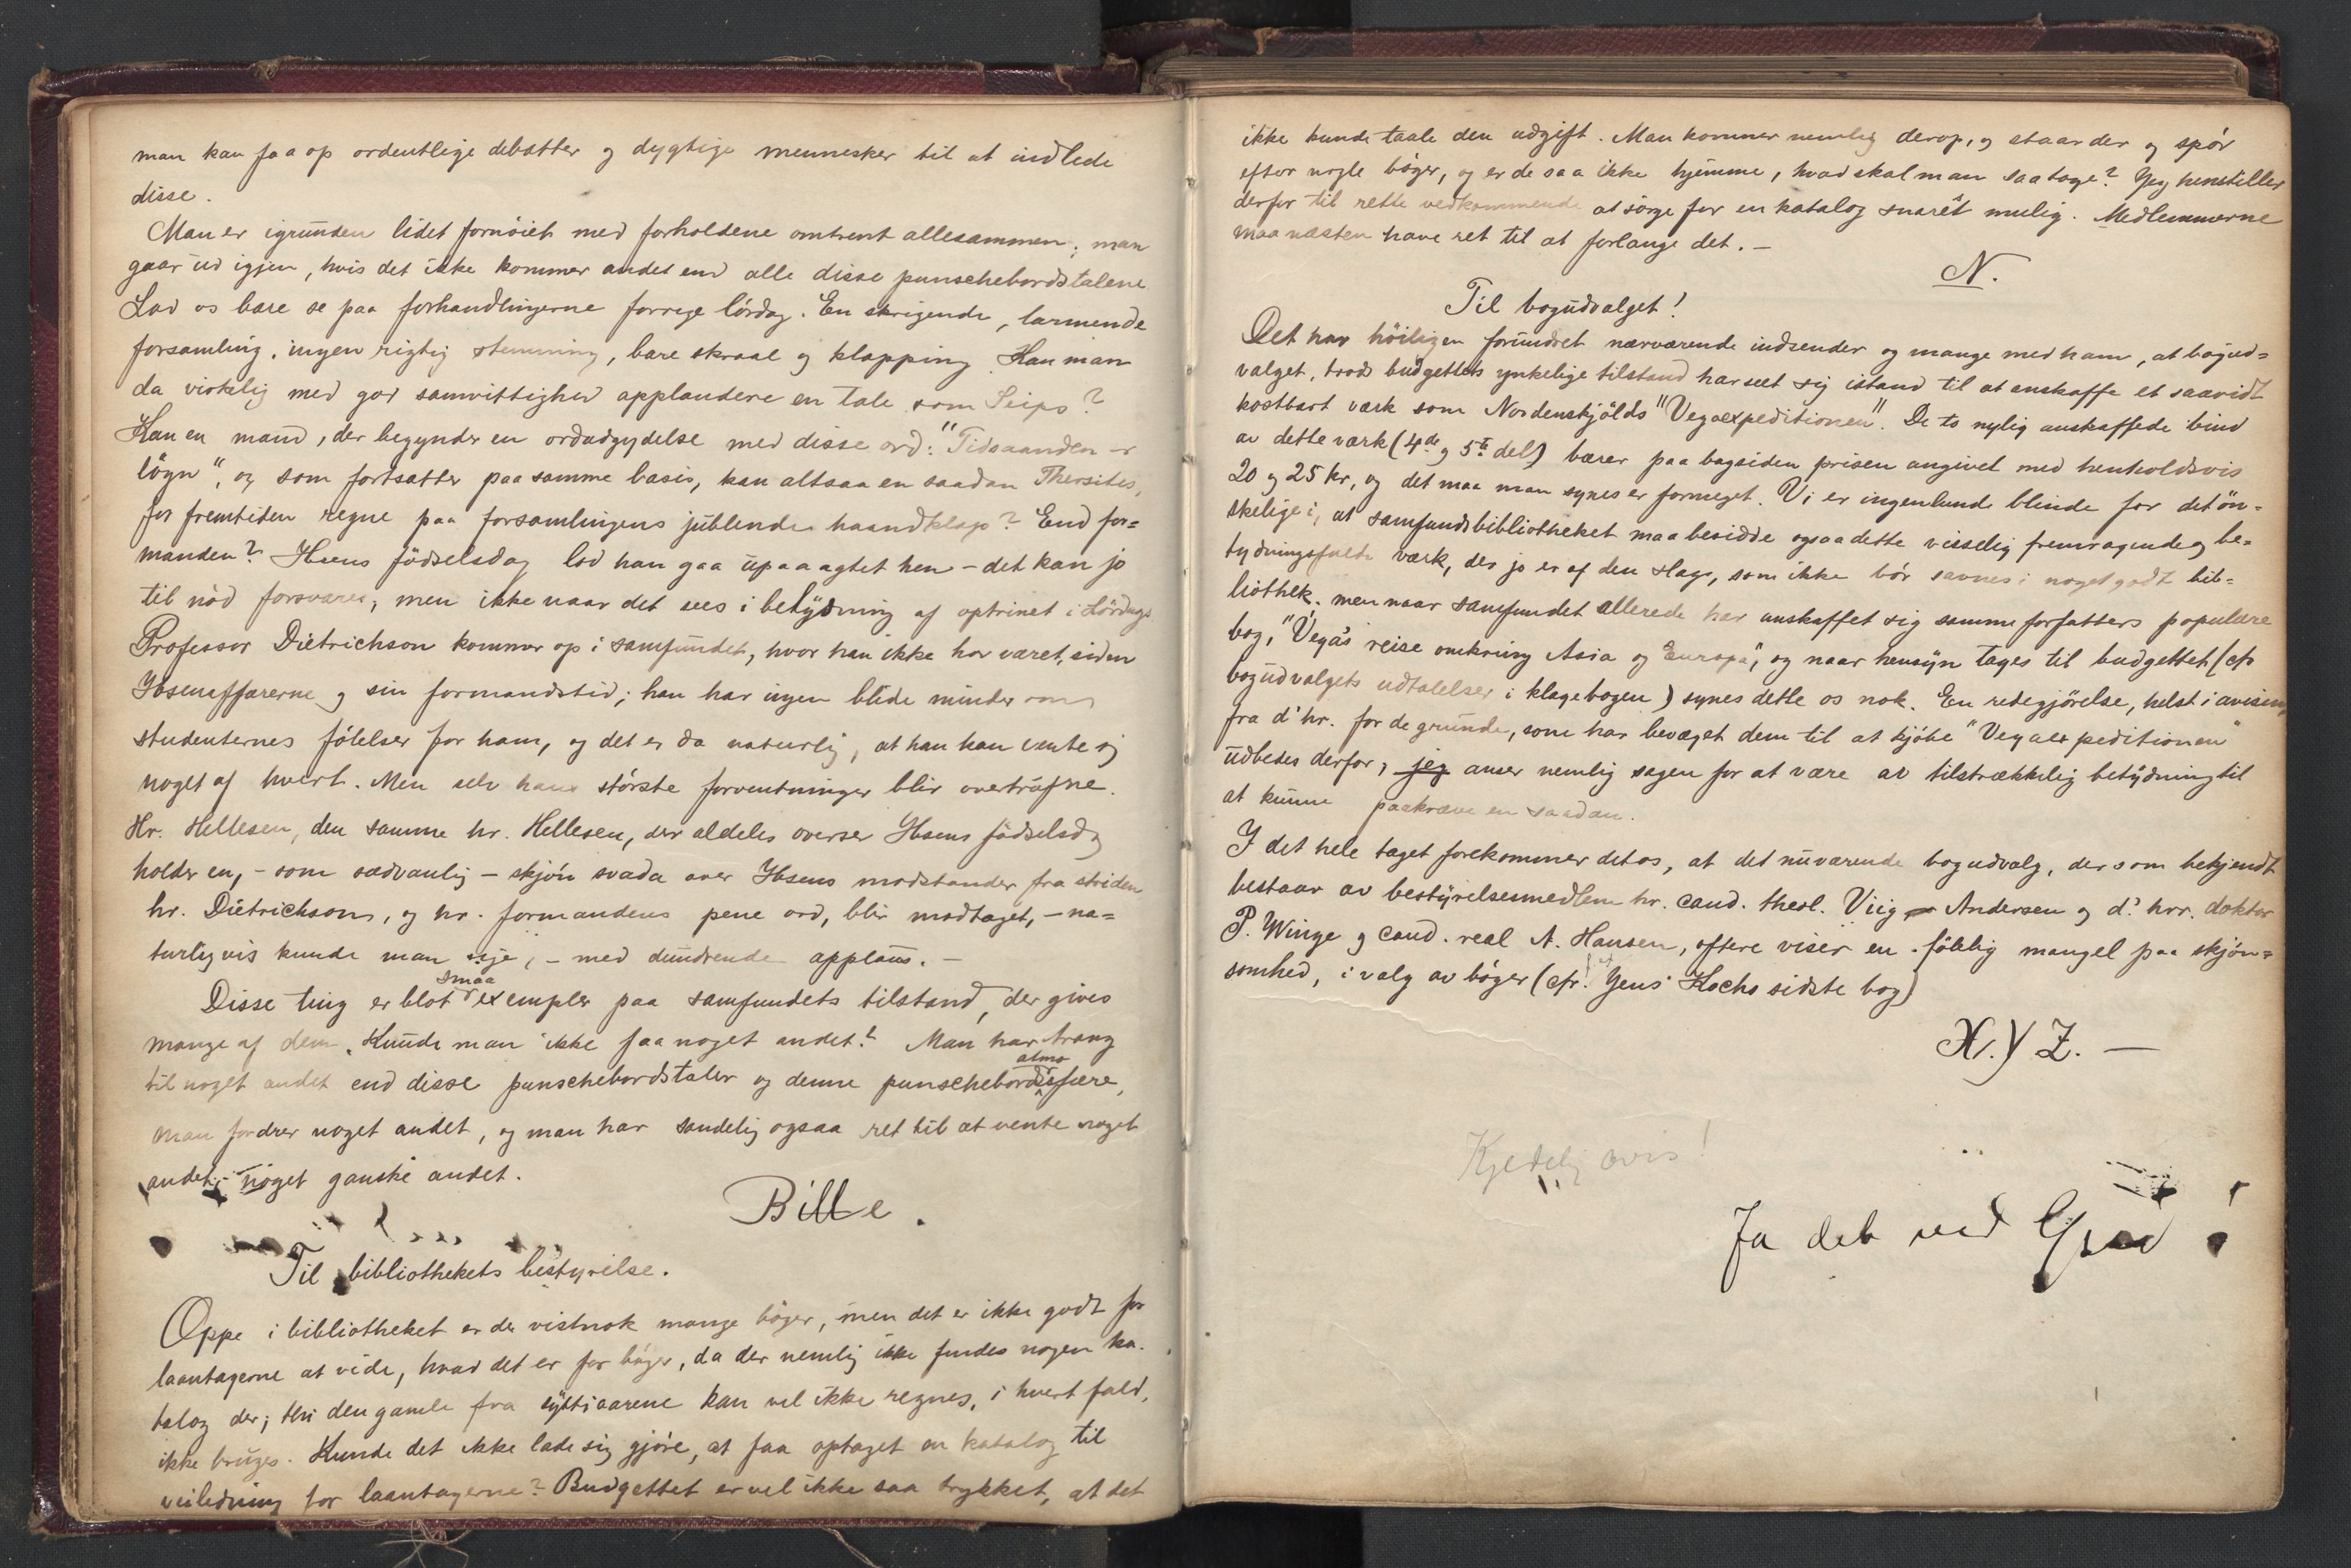 man kan faa op ordentlige debatter og dygtige mennesker til at indlede
disse.
Man er igrunden lidet fornöiet med forholdene omtrent allesammen; man
gaar ud igjen, hvis det ikke kommer andet end alle disse punschebordstalene
Lad os bare se paa forhandlingerne forrige lördag. En skrigende, larmende
forsamling, ingen rigtig stemning, bare skraal og klapping. Kan man
da virkelig med god samvittighed applaudere en tale som Seips?
Kan en mand, der begynder en ordudgydelse med disse ord: "Tidsaanden er
lögn", og som fortsætter paa samme basis, kan altsaa en saadan Thersites,
for fremtiden regne paa forsamlingens jublende haandklap? End for=
manden? Ibsens födselsdag lod han gaa upaaagtet hen – det kan jo
til nöd forsvares; men ikke naar det sees i belysning af optrinet i Lördags
Professor Dietrichson kommer op i samfundet, hvor han ikke har været, siden
Ibsenaffærerne og sin formandstid; han har ingen blide minder om
studenternes fölelser for ham, og det er da naturlig, at han kan vente sig
noget af hvert. Men selv hans störste forventninger blir overtrufne.
Hr. Hellesen, den samme hr. Hellesen, der aldeles overser Ibsens födselsdag
holder en, – som sædvanlig – skjön svada over Ibsens modstander fra striden
hr. Dietrichson, og hr. formandens pene ord, blir modtaget, – na=
turligvis kunde man sige, – med dundrende applaus. –
Disse ting er blot smaa exempler paa samfundets tilstand, der gives
mange af dem. Kunde man ikke faa noget andet? Man har trang
til noget andet end disse punschebordstaler og denne punschebordsatmosfære,
man fordrer noget andet, og man har sandelig ogsaa ret til at vente noget
andet, noget ganske andet.
Bille.
Til bibliothekets bestyrelse.
Oppe i bibliotheket er der vistnok mange böger, men det er ikke godt for
laantagerne at vide, hvad det er for böger, da der nemlig ikke findes nogen ka-
talog der; thi den gamle fra syttiaarene kan vel ikke regnes, i hvert fald,
ikke bruges. Kunde det ikke lade sig gjöre, at faa optaget en katalog til
veiledning for laantagerne? Budgettet er vel ikke saa trykket, at det
ikke kunde taale den udgift. Man kommer nemlig derop, og staar der og spör
efter nogle böger, og er de saa ikke hjemme, hvad skal man saa tage? Jeg henstiller
derfor til rette vedkommende at sörge for en katalog snarest mulig. Medlemmerne
maa næsten have ret til at forlange det. –
N.
Til bogudvalget!
Det har höiligen forundret nærværende indsender og mange med ham, at bogud=
valget, trods budgettets ynkelige tilstand har seet sig istand til at anskaffe et saavidt
kostbart værk som Nordenskjölds "Vegaexpeditionen". De to nylig anskaffede bind
av dette værk (4de og 5te del) bærer paa bagsiden prisen angivet med henholdsvis
20 og 25 kr, og det maa man synes er formeget. Vi er ingenlunde blinde for det ön=
skelige i, at samfundsbibliotheket maa besidde ogsaa dette visselig fremragende og be=
tydningsfulde værk, der jo er af den slags, som ikke bör savnes i noget godt bib=
liothek; men naar samfundet allerede har anskaffet sig samme forfatters populære
bog, "Vegas reise omkring Asia og Europa", og naar hensyn tages til budgettet (cfr
bogudvalgets udtalelser i klagebogen) synes dette os nok. En redegjörelse, helst i avisen,
fra d'hr. for de grunde, som har bevæget dem til at kjöbe "Vegaexpeditionen"
udbedes derfor; jeg anser nemlig sagen for at være av tilstrækkelig betydning til
at kunne paakræve en saadan.
I det hele taget forekommer det os, at det nuværende bogudvalg, der som bekjendt
bestaar av bestyrelsesmedlem hr. cand. theol. Viig Andersen og d'hrr. doktor
P. Winge og cand. real A. Hansen, oftere viser en fölelig mangel paa skjön=
somhed, i valg av böger (cfr. Jens Kochs sidste bog)
X.Y Z. —
Kjedelig avis!
Ja det ved Gud!